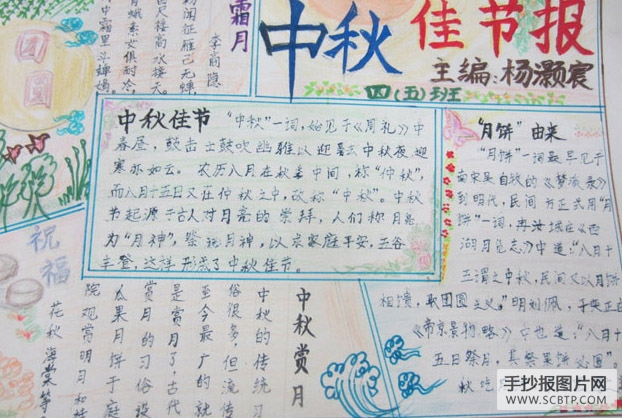 霜月
李商隐
初闻征雁已无蝉
百尺楼高水接天
青娥素女俱耐冷
月中霜里斗婵娟
团圆
中秋佳节报
主编:杨灏宸
四(五)班
中秋佳节
"中秋"一词,始见于《周礼》中
春昼,鼓击士鼓吹幽雅以迎暑云中秋夜迎
寒亦如云。农历八月在秋季中间,称"仲秋",
而八月十五日又在仲秋之中,故称"中秋"。中秋
节起源于古人对月亮的崇拜,人们称月亮
为"月神",祭祀月神,以求家庭平安,五谷
丰登,这样形成了中秋佳节。
"月饼"由来
"月饼"一词最早见于
南宋吴自牧的《梦梁录》
到明代,民间才正式用"月
饼"一词,
中道:"八月十
五谓之中秋,民间又以月饼
相馈,取团圆之义。"明刘侗、于奕正
《帝京景物略》中也道:"八月十
五日祭月,其祭果饼必圆
祝福
中秋赏月
中秋的传统习
俗很多,但流传
至今最广的就
是赏月了,古代
赏月的习俗设
瓜果月饼于庭
院观赏明月和
花秋海棠等
手抄报图片网
WWW.SCBTP.COM